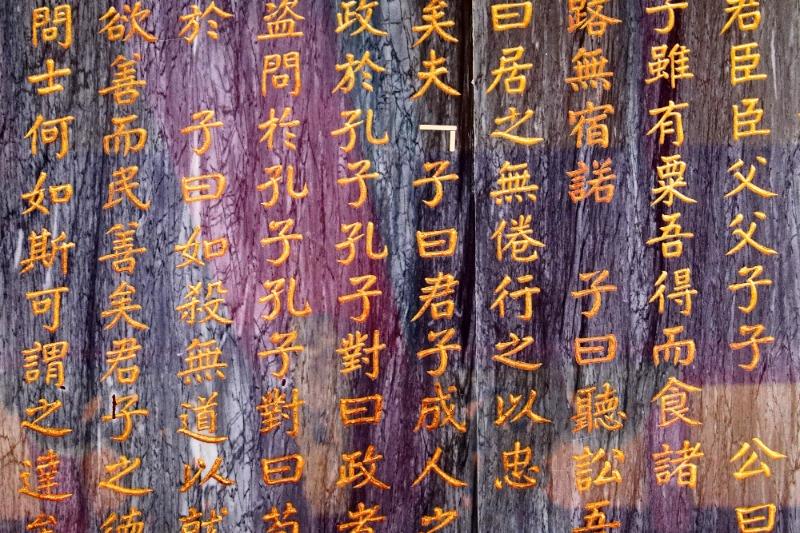 君臣臣父父子子 公曰
子雖有粟吾得而食諸
路無宿諾 子曰聽訟吾
曰居之無倦行之以忠
矣夫「子曰君子成人之
政於孔子孔子對曰政者
盜問於孔子孔子對曰苟
於 子曰如殺無道以就
欲善而民善矣君子之德
問士何如斯可謂之達矣